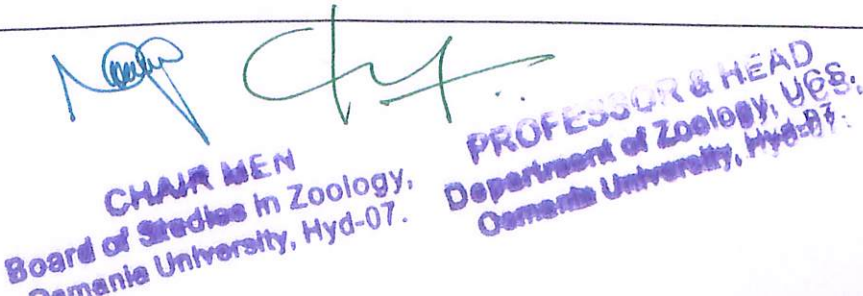 CHAIR MEN
Board of Studies in Zoology,
Osmania University, Hyd-07.
PROFESSOR & HEAD
Department of Zoology, UCS,
Osmania University, Hyd-07.